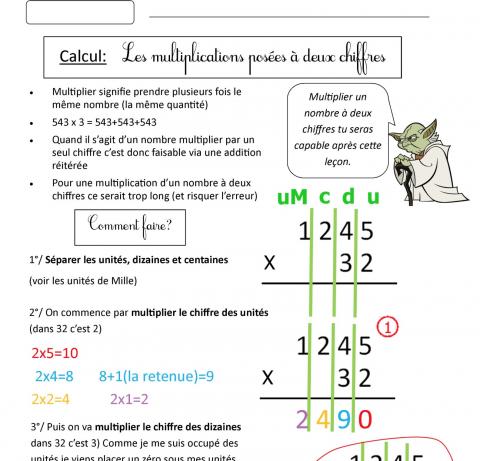 Calcul: Les multiplications posées à deux chiffres
Multiplier signifie prendre plusieurs fois le
même nombre (la même quantité)
543 x 3 = 543+543+543
Quand il s'agit d'un nombre multiplier par un
seul chiffre c'est donc faisable via une addition
réitérée
Pour une multiplication d'un nombre à deux
chiffres ce serait trop long (et risquer l'erreur)
Multiplier un
nombre à deux
chiffres tu seras
capable après cette
leçon.
Comment faire?
1°/ Séparer les unités, dizaines et centaines
(voir les unités de Mille)
uM c d u
1 2 4 5
X 3 2
2°/ On commence par multiplier le chiffre des unités
(dans 32 c'est 2)
2x5=10
2x4=8 8+1(la retenue)=9
2x2=4 2x1=2
1
1 2 4 5
X 3 2
2 4 9 0
3°/ Puis on va multiplier le chiffre des dizaines
dans 32 c'est 3) Comme je me suis occupé des
unités je viens placer un zéro sous mes unités
1 2 4 5